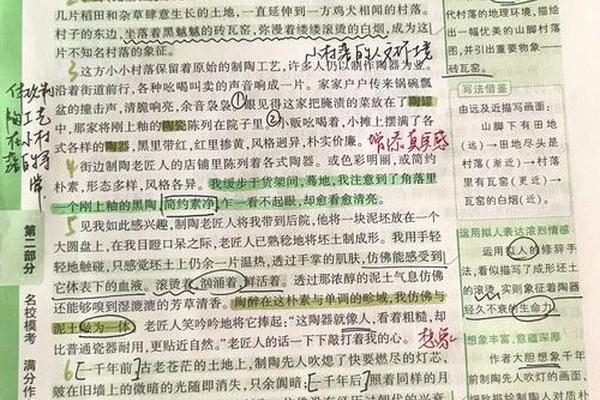 几片稻田和杂草肆意生长的土地，一直延伸到一方鸡犬相闻的村落。
村子的东边，坐落着黑魆魆的砖瓦窑，弥漫着缕缕滚烫的白烟，成为这
片不知名村落的象征。
小村落的人文环境
3 这方小小村落保留着原始的制陶工艺，许多人仍以制作陶器为业。
沿着街道前行，各种吆喝叫卖的声音响成一片。家家户户传来锅碗瓢
盆的撞击声，清脆响亮，余音袅袅①眼见得这家把腌渍的菜放在了陶罐
中，那家将刚上釉的陶瓷陈列在院子里②小贩吆喝着，小摊上摆满了各
式各样的陶器，黑里带红，红里掺黄，风格迥异，朴实价廉。
增添真实感
4 街边制陶老匠人的店铺里陈列着各式陶器。或色彩明丽，或简约
朴素，形态多样，风格各异。我缓步于货架间，蓦地，我注意到了角落里
一个刚上釉的黑陶，简约素净，乍一看不起眼，却愈看愈清亮。
5 见我如此感兴趣，制陶老匠人将我带到后院，他将一块泥坯放在一个
大圆盘上，在我目瞪口呆之际，老匠人已熟稔地将坯土制成形。我用手轻
轻地触碰，只感觉坯土上仍余一片温热，透过手掌的肌肤，仿佛能感受到
它体表下的血液。滚烫着，汹涌着，鲜活着。透过那浓醇的泥土气息仿佛
还能够嗅到湿漉漉的芳草清香。陶醉在这朴素与单调的畛域，我仿佛与
泥土融为一体。老匠人笑吟吟地将它捧起："这陶器就像人，看着粗糙，却
比普通瓷器耐用，更贴近自然。"老匠人的话一下下敲打着我的心。
6 [一千年前]古老苍茫的土地上，制陶先人吹熄了快要燃尽的灯芯，
皴在旧墙上的微暗的光随即消失，只余阒暗。[一千年后]照着同样的月
体现制
陶工艺
在小村
第二部分
名校模考
满分作
代村落的地理环境，描绘
出一幅优美的山脚村落
图，并引出重要物象——
砖瓦窑。
写法借鉴
由远及近描写画面：
山脚下有田地
（远）→田地尽头是
村落（渐近）→村落
里有瓦窑（更近）→
瓦窑的白烟（近）。
运用拟人表达浓烈情感
运用拟人的修辞手
法，看似描写了成形坯土
的滚烫，实则象征着陶器
经久不衰的生命力。
想象丰富，意蕴深厚
作者大胆想象千年
前制陶先人制陶之景，